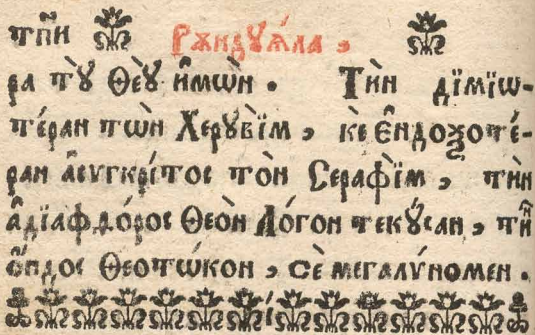 тп҃и Рѫндꙋѧ́ла ,
ра тꙋ̀ Ѳеꙋ̀ и҆мѡ̀н . Тѝн ди̑мїѡ-
те́ран тѡ̀н Херꙋвїм , кѐ е҆ндоѯоте́-
ран а҆сѵгкрі́тос то̀н Серафі̀м , тѝн
а҆дїафдо́рос Ѳео̀н Ло́гон текꙋ́сан , ти̑н
о҆́ндос Ѳеотѡ́кон , сѐ мегалѵ́номен .